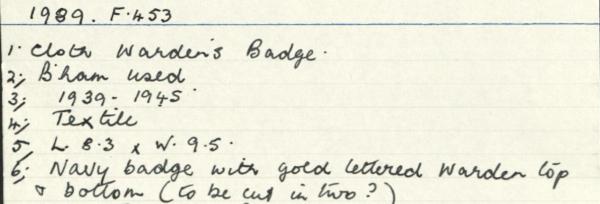 1989. F.453
1. Cloth Warden's Badge.
2; B'ham used
3; 1939-1945
4; Textile
5, L 8.3 x W. 9.5.
6; Navy badge with gold lettered Warden top
& bottom (to be cut in two?)